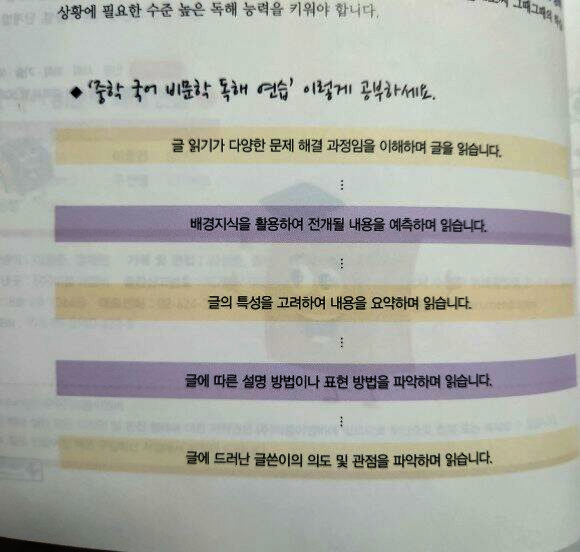 상황에 필요한 수준 높은 독해 능력을 키워야 합니다.
그때그때의
◆ '중학 국어 비문학 독해 연습' 이렇게 공부하세요.
글 읽기가 다양한 문제 해결 과정임을 이해하며 글을 읽습니다.
배경지식을 활용하여 전개될 내용을 예측하며 읽습니다.
글의 특성을 고려하여 내용을 요약하며 읽습니다.
글에 따른 설명 방법이나 표현 방법을 파악하며 읽습니다.
글에 드러난 글쓴이의 의도 및 관점을 파악하며 읽습니다.